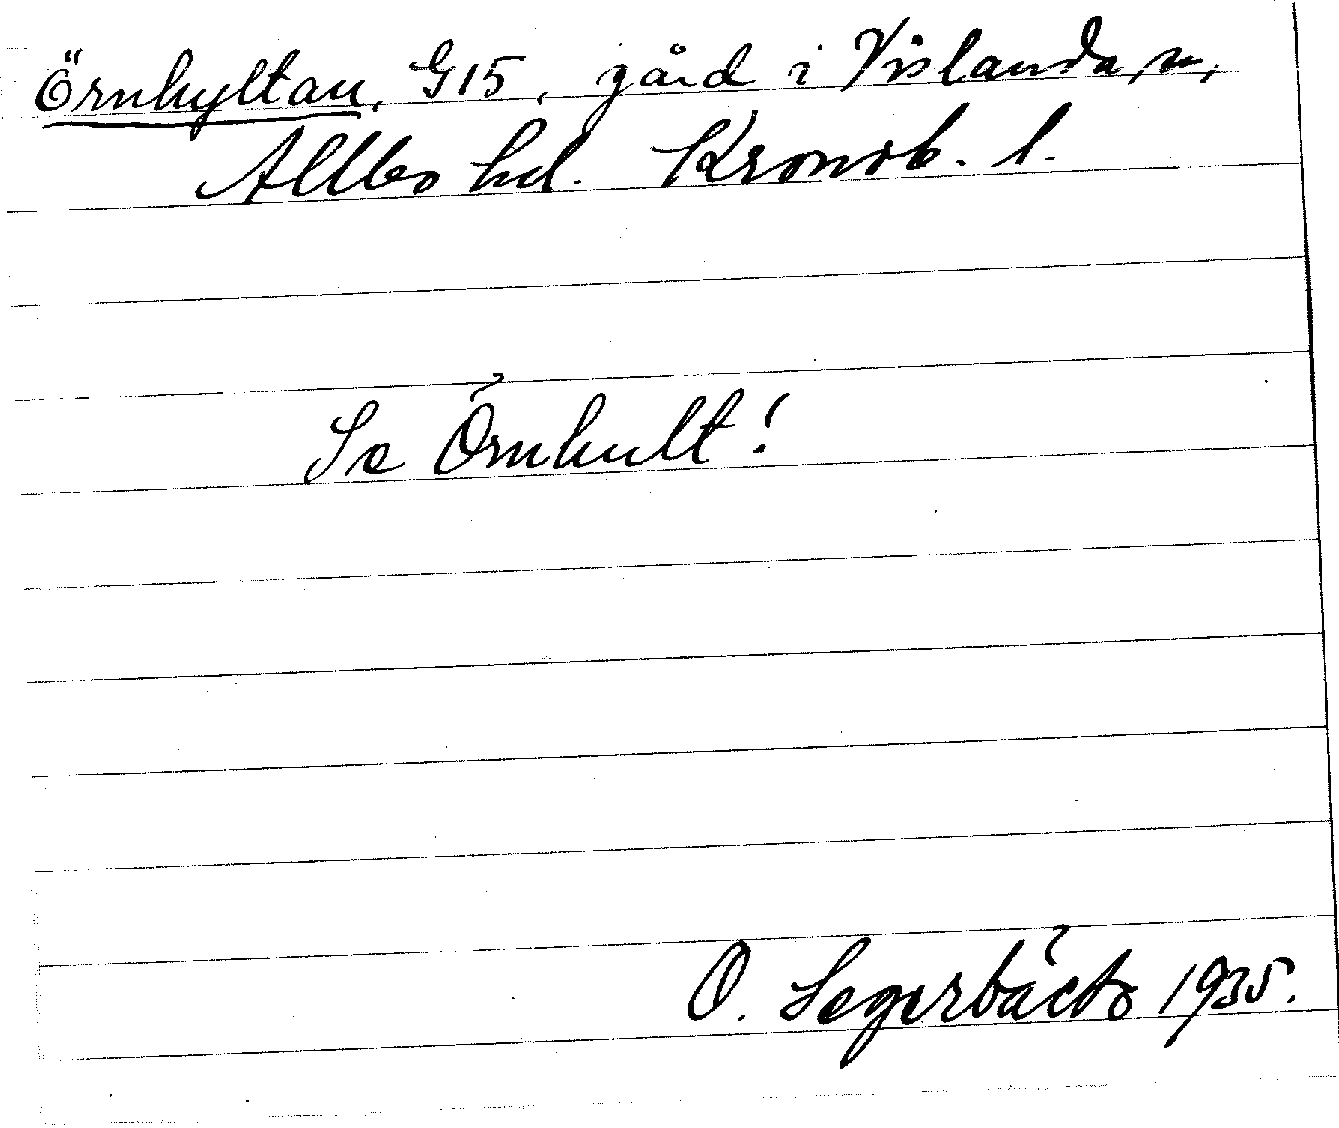 Örnhyltan, G15, gård i Vislanda, sn,
Allbo hd. Kronob. l.
Se Örnhult!
O. Segerbäck 1935.